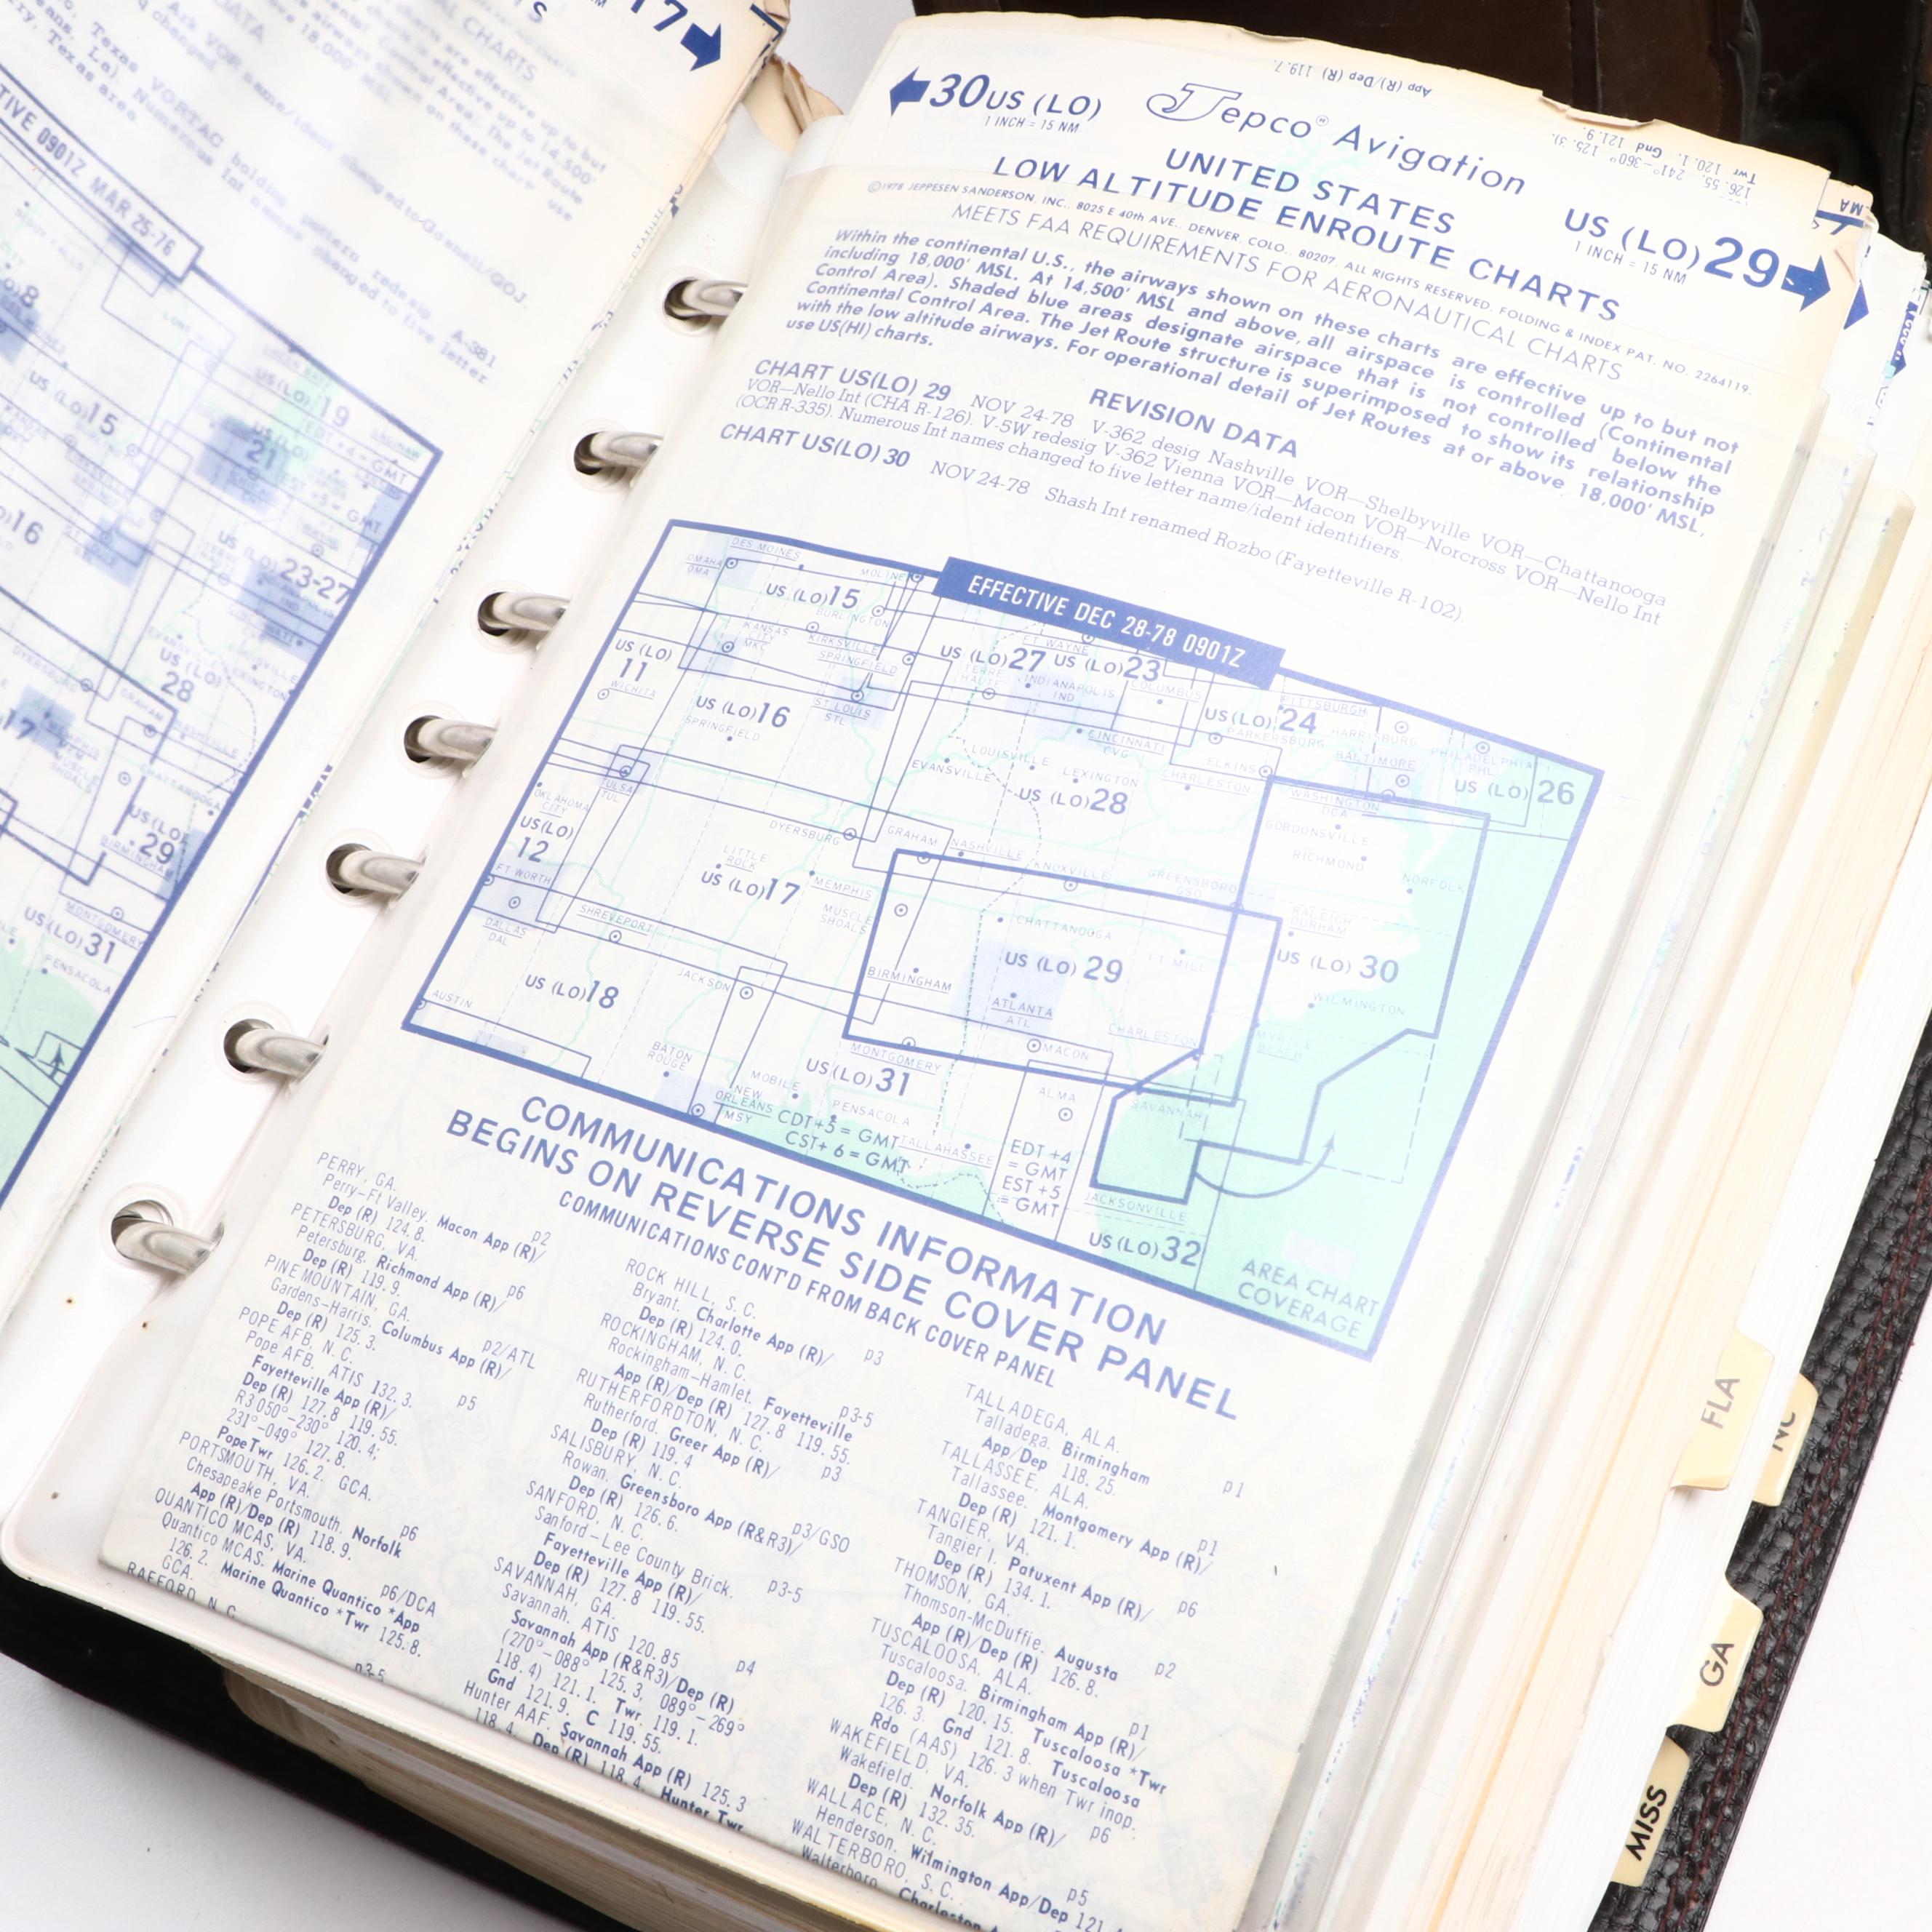 17
CHARTS
TIVE 0901Z MAR 25-76
VORTAC holding pattern redesig. A-381
Numerous Int names changed to five letter
US (LO) 15
US (LO) 19
21
16
US (LO) 23-27
US (LO) 28
17
US (LO) 29
BIRMINGHAM
MONTGOMERY
US (LO) 31
PENSACOLA
App (R)/Dep (R) 119.7.
30 US (LO)
1 INCH = 15 NM
Jepco® Avigation
UNITED STATES
LOW ALTITUDE ENROUTE CHARTS
US (LO) 29
1 INCH = 15 NM
©1978 JEPPESEN SANDERSON, INC., 8025 E 40th AVE., DENVER, COLO., 80207. ALL RIGHTS RESERVED. FOLDING & INDEX PAT. NO. 2264119.
MEETS FAA REQUIREMENTS FOR AERONAUTICAL CHARTS
Within the continental U.S., the airways shown on these charts are effective up to but not
including 18,000' MSL. At 14,500' MSL and above, all airspace is controlled (Continental
Control Area). Shaded blue areas designate airspace that is not controlled below the
Continental Control Area. The Jet Route structure is superimposed to show its relationship
with the low altitude airways. For operational detail of Jet Routes at or above 18,000' MSL,
use US(HI) charts.
REVISION DATA
CHART US(LO) 29 NOV 24-78 V-362 desig Nashville VOR—Shelbyville VOR—Chattanooga
VOR—Nello Int (CHA R-126). V-5W redesig V-362 Vienna VOR—Macon VOR—Norcross VOR—Nello Int
(OCR R-335). Numerous Int names changed to five letter name/ident identifiers.
CHART US(LO) 30 NOV 24-78 Shash Int renamed Rozbo (Fayetteville R-102).
EFFECTIVE DEC 28-78 0901Z
DES MOINES
OMAHA
OMA
MOLINE
US (LO) 15
BURLINGTON
KANSAS CITY
MKC
KIRKSVILLE
SPRINGFIELD
FT WAYNE
US (LO) 27
US (LO) 23
TERRE HAUTE
INDIANAPOLIS
IND
COLUMBUS
PITTSBURGH
US (LO) 11
WICHITA
US (LO) 16
SPRINGFIELD
ST LOUIS
STL
US (LO) 24
PARKERSBURG
HARRISBURG
PHILADELPHIA
PHL
CINCINNATI
CVG
LOUISVILLE
EVANSVILLE
LEXINGTON
ELKINS
CHARLESTON
BALTIMORE
US (LO) 26
US (LO) 28
WASHINGTON
DCA
TULSA
TUL
OKLAHOMA CITY
US (LO) 12
FT WORTH
DYERSBURG
GRAHAM
NASHVILLE
KNOXVILLE
GORDONSVILLE
RICHMOND
NORFOLK
GREENSBORO
GSO
LITTLE ROCK
US (LO) 17
MEMPHIS
MUSCLE SHOALS
CHATTANOOGA
RALEIGH DURHAM
DALLAS
DAL
SHREVEPORT
US (LO) 29
FT MILL
US (LO) 30
BIRMINGHAM
ATLANTA
ATL
WILMINGTON
JACKSON
US (LO) 18
AUSTIN
CHARLESTON
MYRTLE BEACH
MACON
MONTGOMERY
BATON ROUGE
US (LO) 31
MOBILE
ALMA
SAVANNAH
NEW ORLEANS
MSY
PENSACOLA
TALLAHASSEE
CDT+5 = GMT
CST+ 6 = GMT
EDT +4
= GMT
EST +5
= GMT
JACKSONVILLE
US (LO) 32
AREA CHART
COVERAGE
COMMUNICATIONS INFORMATION
BEGINS ON REVERSE SIDE COVER PANEL
COMMUNICATIONS CONT'D FROM BACK COVER PANEL
PERRY, GA. p2
Perry-Ft Valley. Macon App (R)/
Dep (R) 124.8.
PETERSBURG, VA. p6
Petersburg. Richmond App (R)/
Dep (R) 119.9.
PINE MOUNTAIN, GA. p2/ATL
Gardens-Harris. Columbus App (R)/
Dep (R) 125.3.
POPE AFB, N.C. p5
Pope AFB. ATIS 132.3.
Fayetteville App (R)/
Dep (R) 127.8 119.55.
R3 050°-230° 120.4;
231°-049° 127.8.
Pope Twr 126.2. GCA.
PORTSMOUTH, VA. p6
Chesapeake Portsmouth. Norfolk
App (R)/Dep (R) 118.9.
QUANTICO MCAS, VA. p6/DCA
Quantico MCAS. Marine Quantico *App
126.2. Marine Quantico *Twr 125.8.
GCA.
RAEFORD, N.C. p3-5
ROCK HILL, S.C. p3
Bryant. Charlotte App (R)/
Dep (R) 124.0.
ROCKINGHAM, N.C. p3-5
Rockingham-Hamlet. Fayetteville
App (R)/Dep (R) 127.8 119.55.
RUTHERFORDTON, N.C. p3
Rutherford. Greer App (R)/
Dep (R) 119.4
SALISBURY, N.C. p3/GSO
Rowan. Greensboro App (R&R3)/
Dep (R) 126.6.
SANFORD, N.C. p3-5
Sanford-Lee County Brick.
Fayetteville App (R)/
Dep (R) 127.8 119.55.
SAVANNAH, GA. p4
Savannah. ATIS 120.85
Savannah App (R&R3)/Dep (R)
(270°-088° 125.3, 089°-269°
118.4) 121.1. Twr 119.1.
Gnd 121.9. C 119.55.
Hunter AAF. Savannah App (R) 125.3
118.4. Dep (R) 118.4. Hunter Twr
TALLADEGA, ALA. p1
Talladega. Birmingham
App/Dep 118.25.
TALLASSEE, ALA. p1
Tallassee. Montgomery App (R)/
Dep (R) 121.1.
TANGIER, VA. p6
Tangier I. Patuxent App (R)/
Dep (R) 134.1.
THOMSON, GA. p2
Thomson-McDuffie. Augusta
App (R)/Dep (R) 126.8.
TUSCALOOSA, ALA. p1
Tuscaloosa. Birmingham App (R)/
Dep (R) 120.15. Tuscaloosa *Twr
126.3. Gnd 121.8. Tuscaloosa
Rdo (AAS) 126.3 when Twr inop.
WAKEFIELD, VA. p6
Wakefield. Norfolk App (R)/
Dep (R) 132.35.
WALLACE, N.C. p5
Henderson. Wilmington App/Dep 121.
WALTERBORO, S.C.
Walterboro. Charleston
FLA
NC
GA
MISS